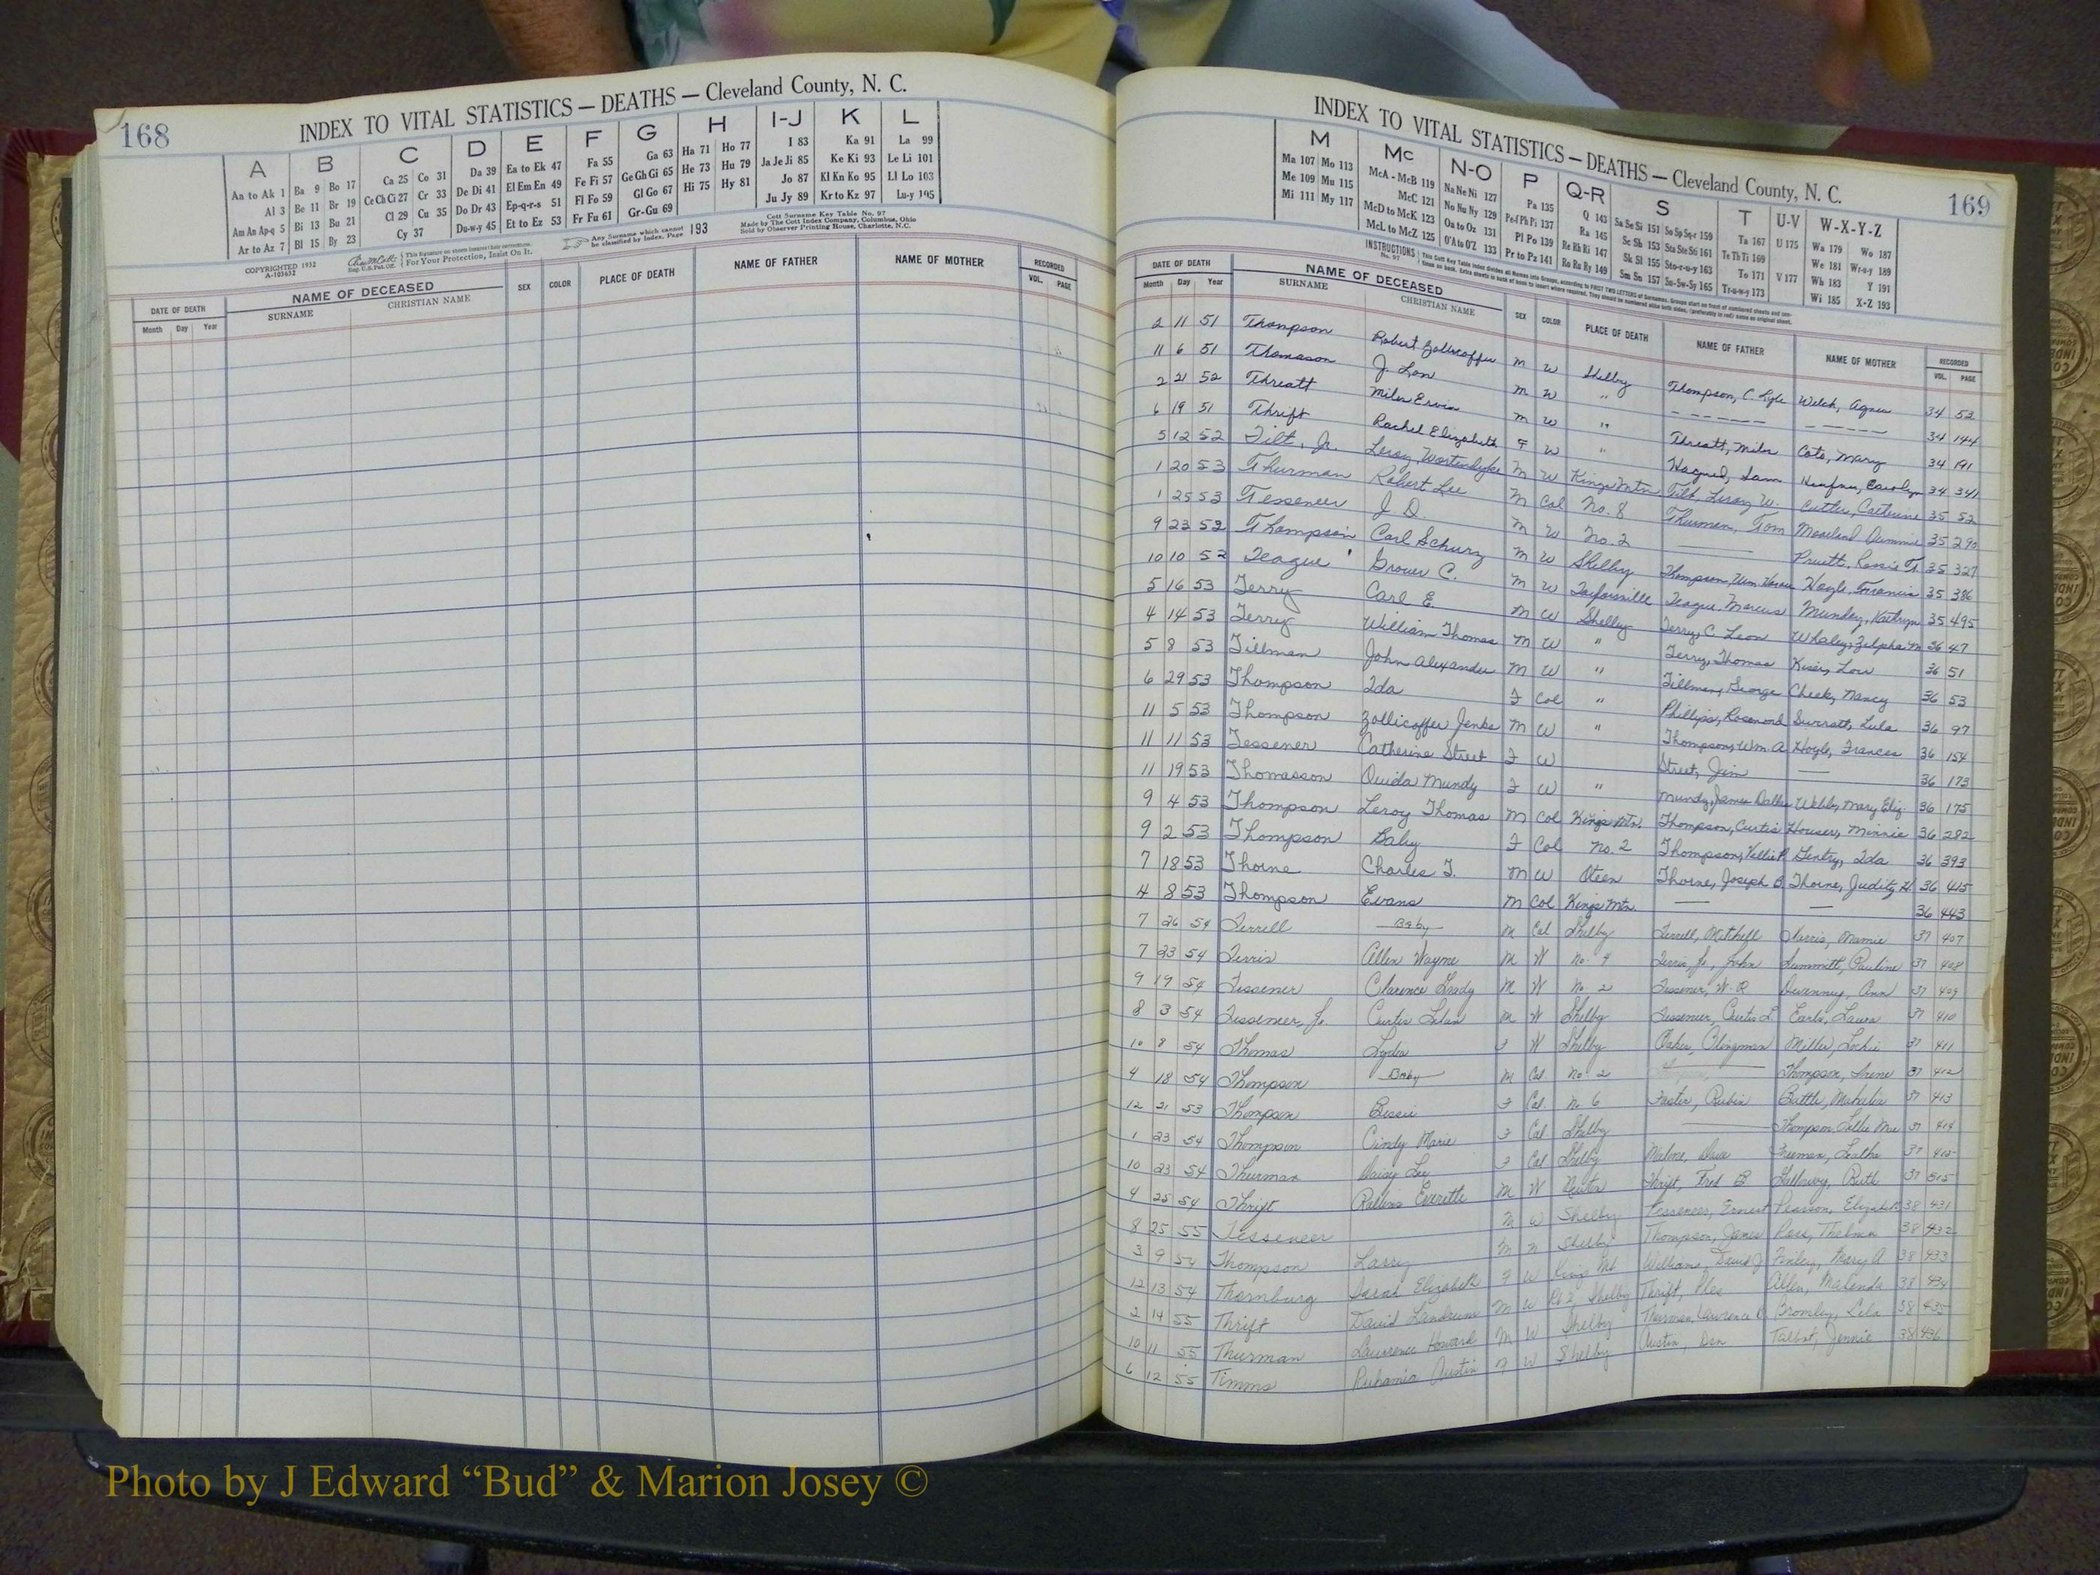 168
INDEX TO VITAL STATISTICS — DEATHS — Cleveland County, N. C.
A B C D E F G H I-J K L
Aa to Ak 1 Ba 9 Bo 17 Ca 25 Co 31 Da 39 Ea to Ek 47 Fa 55 Ga 63 Ha 71 Ho 77 I 83 Ka 91 La 99
Al 3 Be 11 Br 19 Ce Ch Ci 27 Cr 33 De Di 41 El Em En 49 Fe Fi 57 Ge Gh Gi 65 He 73 Hu 79 Ja Je Ji 85 Ke Ki 93 Le Li 101
Am An Ap-q 5 Bi 13 Bu 21 Cl 29 Cu 35 Do Dr 43 Ep-q-r-s 51 Fl Fo 59 Gl Go 67 Hi 75 Hy 81 Jo 87 Kl Kn Ko 95 Ll Lo 103
Ar to Az 7 Bl 15 By 23 Cy 37 Du-w-y 45 Et to Ez 53 Fr Fu 61 Gr-Gu 69 Ju Jy 89 Kr to Kz 97 Lu-y 105
COPYRIGHTED 1932
A-103632
Reg. U.S. Pat. Off.
This Signature on sheets insures their correctness.
For Your Protection, Insist On It.
Any Surname which cannot be classified by Index, Page 193
Cott Surname Key Table No. 97
Made by The Cott Index Company, Columbus, Ohio
Sold by Observer Printing House, Charlotte, N.C.
DATE OF DEATH NAME OF DECEASED SEX COLOR PLACE OF DEATH NAME OF FATHER NAME OF MOTHER RECORDED
Month Day Year SURNAME CHRISTIAN NAME VOL. PAGE
169
INDEX TO VITAL STATISTICS — DEATHS — Cleveland County, N. C.
M Mc N-O P Q-R S T U-V W-X-Y-Z
Ma 107 Mo 113 McA - McB 119 Na Ne Ni 127 Pa 135 Q 143 Sa Se Si 151 So Sp Sq-r 159 Ta 167 U 175 Wa 179 Wo 187
Me 109 Mu 115 McC 121 No Nu Ny 129 Pe-f Ph Pi 137 Ra 145 Sc Sh 153 Sta Ste Sti 161 Te Th Ti 169 We 181 Wr-u-y 189
Mi 111 My 117 McD to McK 123 Oa to Oz 131 Pl Po 139 Re Rh Ri 147 Sk Sl 155 Sto-r-u-y 163 To 171 V 177 Wh 183 Y 191
McL to McZ 125 O'A to O'Z 133 Pr to Pz 141 Ro Ru Ry 149 Sm Sn 157 Su-Sw-Sy 165 Tr-u-w-y 173 Wi 185 X-Z 193
INSTRUCTIONS No. 97
DATE OF DEATH NAME OF DECEASED SEX COLOR PLACE OF DEATH NAME OF FATHER NAME OF MOTHER RECORDED
Month Day Year SURNAME CHRISTIAN NAME VOL. PAGE
2 11 51 Thompson Robert Zollicoffer M W Shelby Thompson, C. Lyle Welch, Agnes 34 52
11 6 51 Thomason J. Lon M W " ----- ----- 34 144
2 21 52 Threatt Miles Ervin M W " Threatt, Miles Cato, Mary 34 191
6 19 51 Thrift Rachel Elizabeth F W " Sam Carolyn 34 341
5 12 52 Tilt, Jr. Leroy M W Kings Mtn Tilt, Leroy W. Catherine 35 52
1 20 53 Thurman Robert Lee M Col No. 8 Thurman, Tom 35 290
1 25 53 Tessener J. D. M W No. 2 —— Pruett, 35 327
9 23 52 Thompson Carl Schurz M W Shelby Thompson, Wm Hoyle, Francis 35 386
10 10 52 Teague Grover C. M W Taylorsville Teague, Marcus Munday, Kathryn 35 495
5 16 53 Terry Carl E. M W Shelby Terry, C. Leon Whaley, Zilpha M 36 47
4 14 53 Terry William Thomas M W " Terry, Thomas Kiser, Lou 36 51
5 8 53 Tillman John Alexander M W " Tillman, George Cheek, Nancy 36 53
6 29 53 Thompson Ida F Col " Phillips, Rosemond Lula 36 97
11 5 53 Thompson Zollicoffer Jenks M W " Thompson, Wm. A Hoyle, Frances 36 154
11 11 53 Tessener Catherine Street F W Street, Jim — 36 173
11 19 53 Thomasson Ouida Mundy F W " Mundy, James Dallas Webb, Mary Eliz. 36 175
9 4 53 Thompson Leroy Thomas M Col Kings Mtn. Thompson, Curtis Houser, Minnie 36 282
9 2 53 Thompson Baby F Col No. 2 Thompson, Gentry, Ida 36 393
7 18 53 Thorne Charles T. M W Oteen Thorne, Joseph B. Thorne, Judity H. 36 415
4 8 53 Thompson Evans M Col Kings Mtn. — — 36 443
7 26 54 Terrell —Baby— M Col Shelby Terrell, Mitchell Harris, Mamie 37 407
7 23 54 Terris Allen Wayne M W No. 9 Terris Jr., John Summitt, Pauline 37 408
9 19 54 Tessener Clarence Grady M W No. 2 Tessener, W. R. Devenney, Ann 37 409
8 3 54 Tesseneer, Jr. Curtis M W Shelby Tesseneer, Curtis L. Earls, Laura 37 410
10 8 54 Thomas Lydia F W Shelby Miller, 37 411
4 18 54 Thompson —Baby— M Col. No. 2 Thompson, Irene 37 412
12 21 53 Thompson Bessie F Col. No 6 Foster, Rubin Battle, 37 413
1 23 54 Thompson Cindy Marie F Col Shelby —— Thompson, Mae 37 414
10 23 54 Thurman Daisy Lee F Col Shelby Malone, Dave Freeman, Leatha 37 415
4 25 54 Thrift Everette M W Thrift, Fred B Gallaway, Ruth 37 515
8 25 55 Tesseneer M W Shelby Tesseneer, Ernest Pearson, Elizabeth 38 431
3 9 54 Thompson Larry M n Shelby Thompson, James Ross, Thelma 38 432
12 13 54 Thornburg Sarah Elizabeth F W Kings Mt. Williams, David J Finley, Mary A 38 433
2 14 55 Thrift David Landrum M W Rt 2, Shelby Thrift, Allen, Malinda 38 434
10 11 55 Thurman Lawrence Howard M W Shelby Thurman, Lawrence Lela 38 435
6 12 55 Timms Ruhamia Austin F W Shelby Austin, Dan Talbot, Jennie 38 436
Photo by J Edward “Bud” & Marion Josey ©